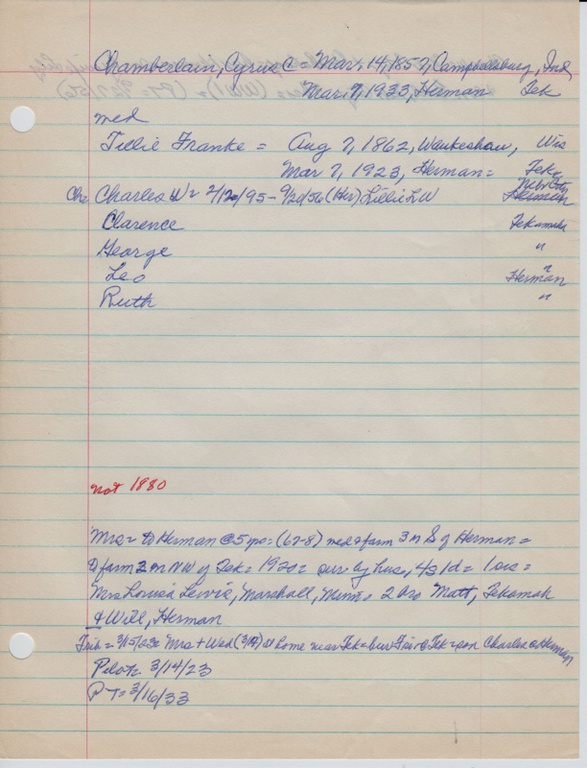 Chamberlain, Cyrus C = Mar, 14, 1857, Campbellsburg, Ind
Mar. 7, 1933, Herman Tek
med
Tillie Franke = Aug 7, 1862, Waukeshaw, Wis
Mar 7, 1923, Herman = Tek
Nebr City
Ch = Charles W = 2/12/95 - 9/20/56 (Her) Lillie LW Herman
Clarence Tekamah
George "
Leo Herman
Ruth "
not 1880
Mrs = to Herman @ 5 yrs = (67-8) med & farm 3 m S of Herman =
to farm 2 m NW of Tek = 1920 = surv by hus, 4s 1d = 1 sis =
Mrs Louisa Lewis, Marshall, Minn = 2 bro Matt, Tekamah
& Will, Herman
Trib = 3/15/23 = Mrs + Wed (3/14) at home near Tek = bur Fri @ Tek = son Charles @ Herman
Pilot = 3/14/23
P T = 3/16/33